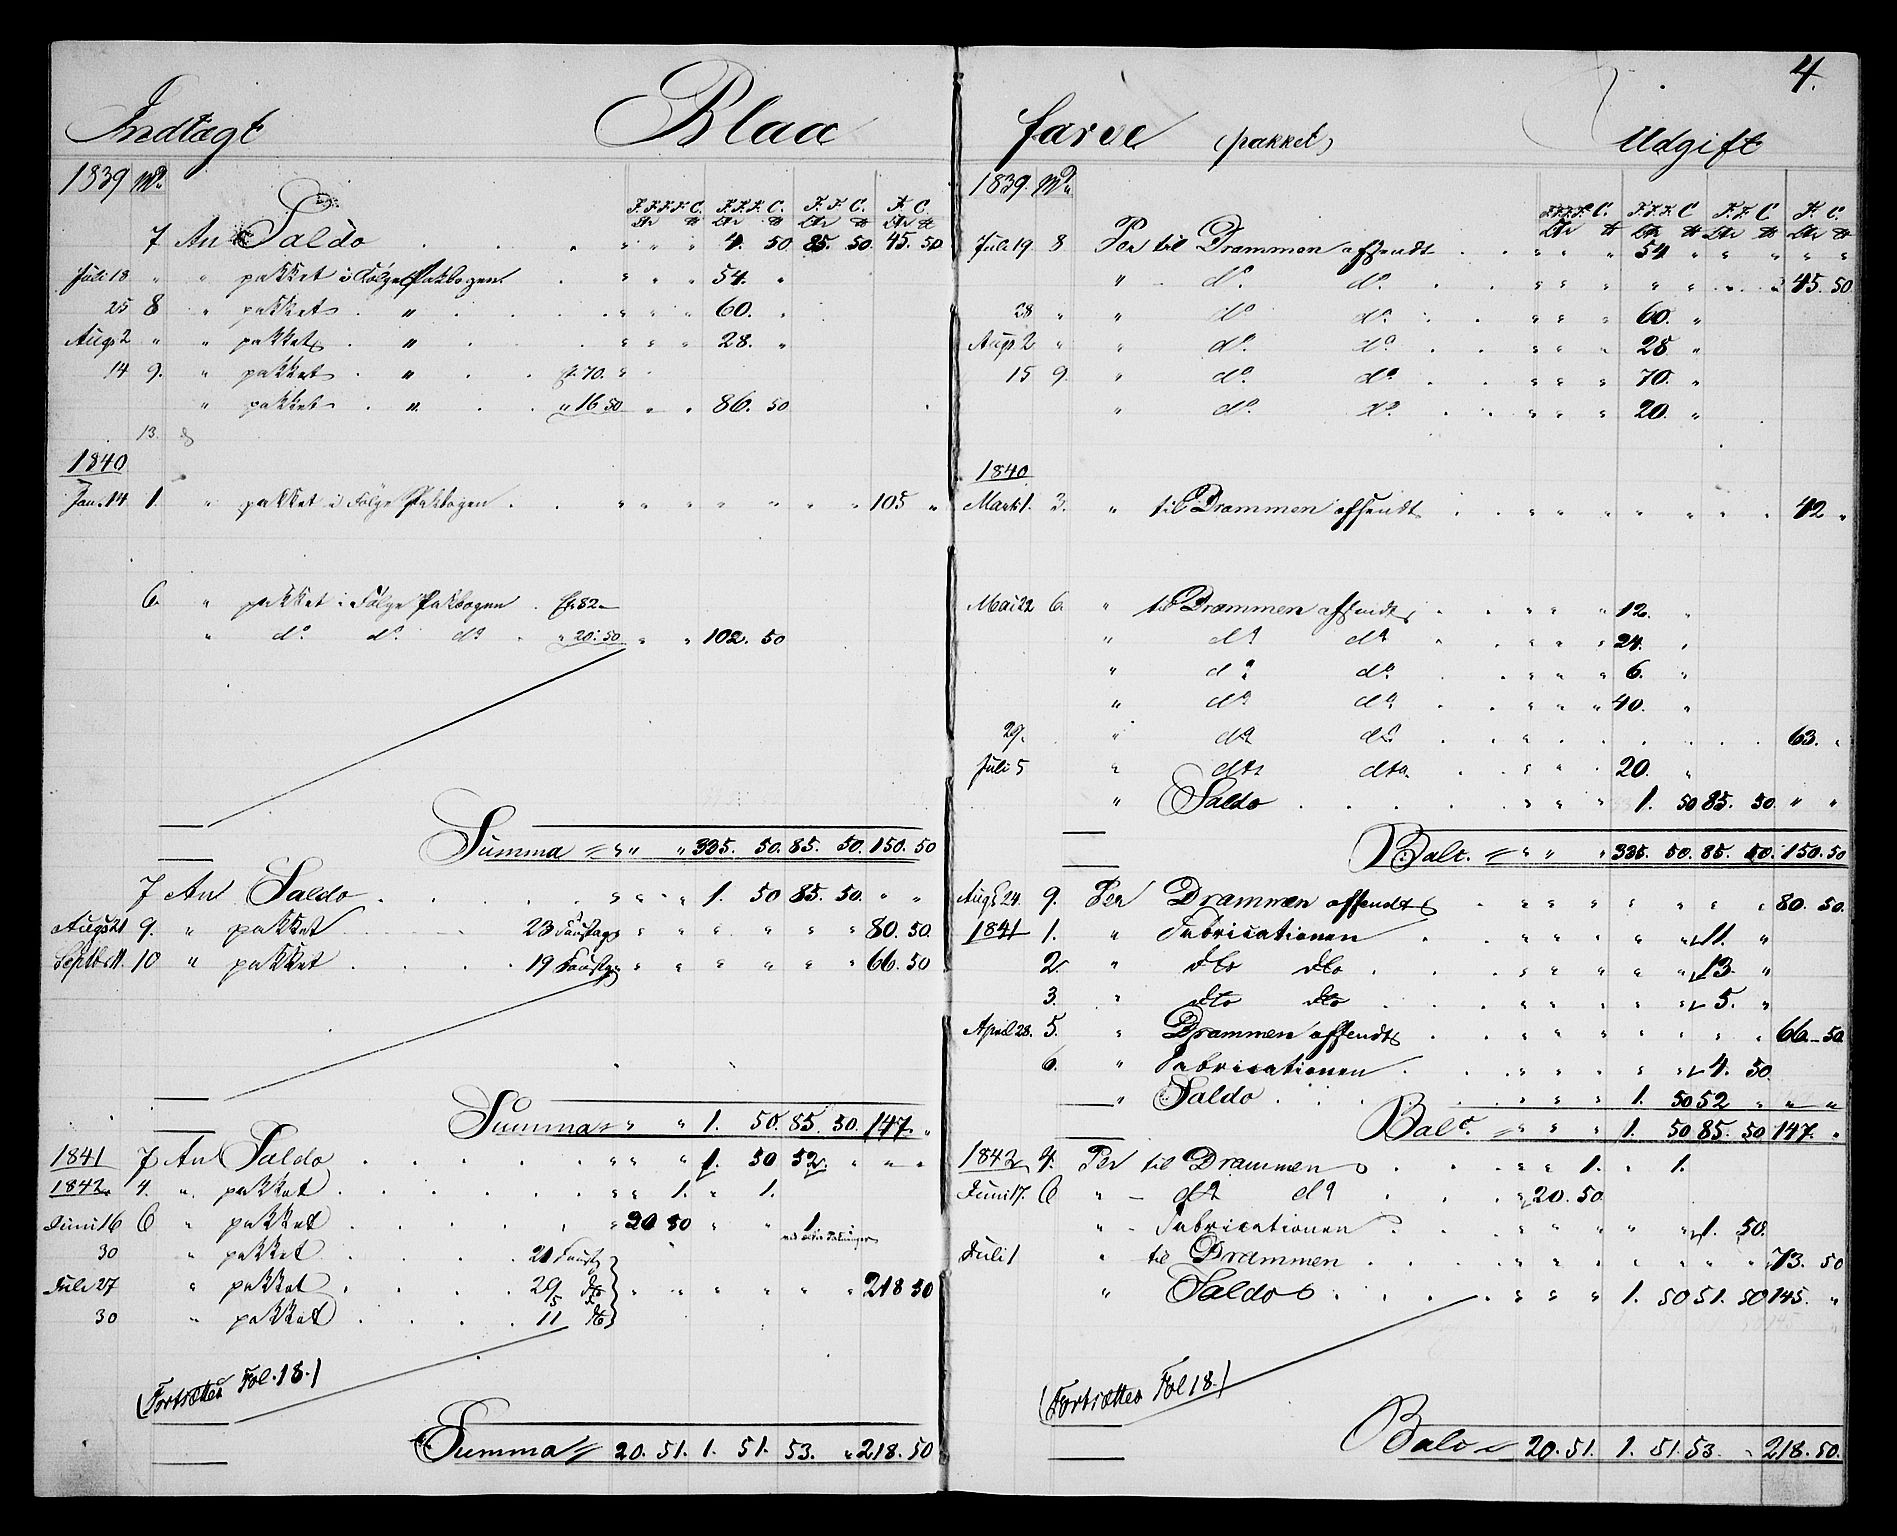 4.
Indtægt Blaa farve (pakket) Udgift
1839 Mo.
F.F.F.F.C. F.F.F.C. F.F.C. F.C.
7 An Saldo . . . " " " 4. 50. 85. 50. 45. 50
Juli 18 " " pakket i Følge Pakbogen . " " " 54. "
25 8 " pakket . " . . . . " " " 60. "
Augs 2 " " pakket . " . . . " " " 28. "
14 9. " pakket . " . . 70. "
" pakket . " . . " 16 50 " " 86. 50
13.
1840
Jan. 14 1. " pakket i Følge Pakbogen . . . " " " " " " " " 105 "
6. " pakket i Følge Pakbogen . 82 –
" do do do . " 20. 50 " " 102. 50
Summa = " " " 335. 50. 85. 50. 150. 50
7 An Saldo . . . . . " " " " 1. 50 85. 50. " "
Augs 21 9. " pakket 23 Faustage " " " " " " 80. 50.
Septbr 11. 10 " pakket . . . . 19 Faustge " " " " " " 66. 50
Summa = " " 1. 50. 85. 50. 147. "
1841 7 An Saldo . . . . . . " " " 1. 50 52. " " "
1842. 4. " pakket . . . . . . " " 1. " 1.
Juni 16 6 " pakket . . . . . " 20 50 " " 1
30 " pakket . . . . 21 Faustge
Juli 27 " pakket . . . . 29 dto " " " " " " 218 50
30 " pakket . . . . 11 do
(Fortsættes Fol. 18.)
Summa = 20. 51. 1. 51. 53. " 218. 50
1839. Mo.
F.F.F.F.C. F.F.F.C F.F.C F.C.
Juli 19. 8 Per til Drammen afsendt . . " " " 54 " " " " "
" – do do . . " " " " " " " " 45. 50
28 " " do do . . " " " 60. "
Augs 2 " " do do . . " " " 28 "
15 9. " do do . . " " " 70. "
" do do . . " " " 20. "
1840
Marts 1. 3. " til Drammen afsendt . . . " " " " " " " 42 "
Mai 22 6. " til Drammen afsendt . . " " " 12. "
" do do . . " " " 24. "
" do do . . " " " 6. "
" do do . . " " " 40. "
29. " do do . . " " . . . . . 63. "
Juli 5 " dto dto . . " " . 20. "
" Saldo . . . . . " " " 1. 50 85. 50. " "
Balc. = " " " 335. 50. 85. 50. 150. 50
Augs 24. 9. Per Drammen afsendt . . " " " " " " " 80. 50.
1841 1. " Fabricationen . . " " " " " 11. "
2 " dto dto . . . " " " " " 13. "
3. " dto dto . . . " " " " " 5. "
April 28. 5. " Drammen afsendt . . " " " " " " " 66. – 50.
6. " Fabricationen . . . " " " " " 4. 50.
" Saldo . . . . . " " " 1. 50 52 " " "
Balc. = " " " 1. 50 85. 50 147. "
1842 4. Per til Drammen . . . " " 1. " 1.
Juni 17. 6 " – do do . . . " 20. 50.
" – Fabricationen . . . " " " " " 1. 50.
Juli 1 " til Drammen . . . . " " " " " " " 73. 50
" Saldo . . . . . " " " 1. 50 51. 50 145. "
(Fortsættes Fol 18.)
Balc = 20. 51. 1. 51 53. " 218. 50.